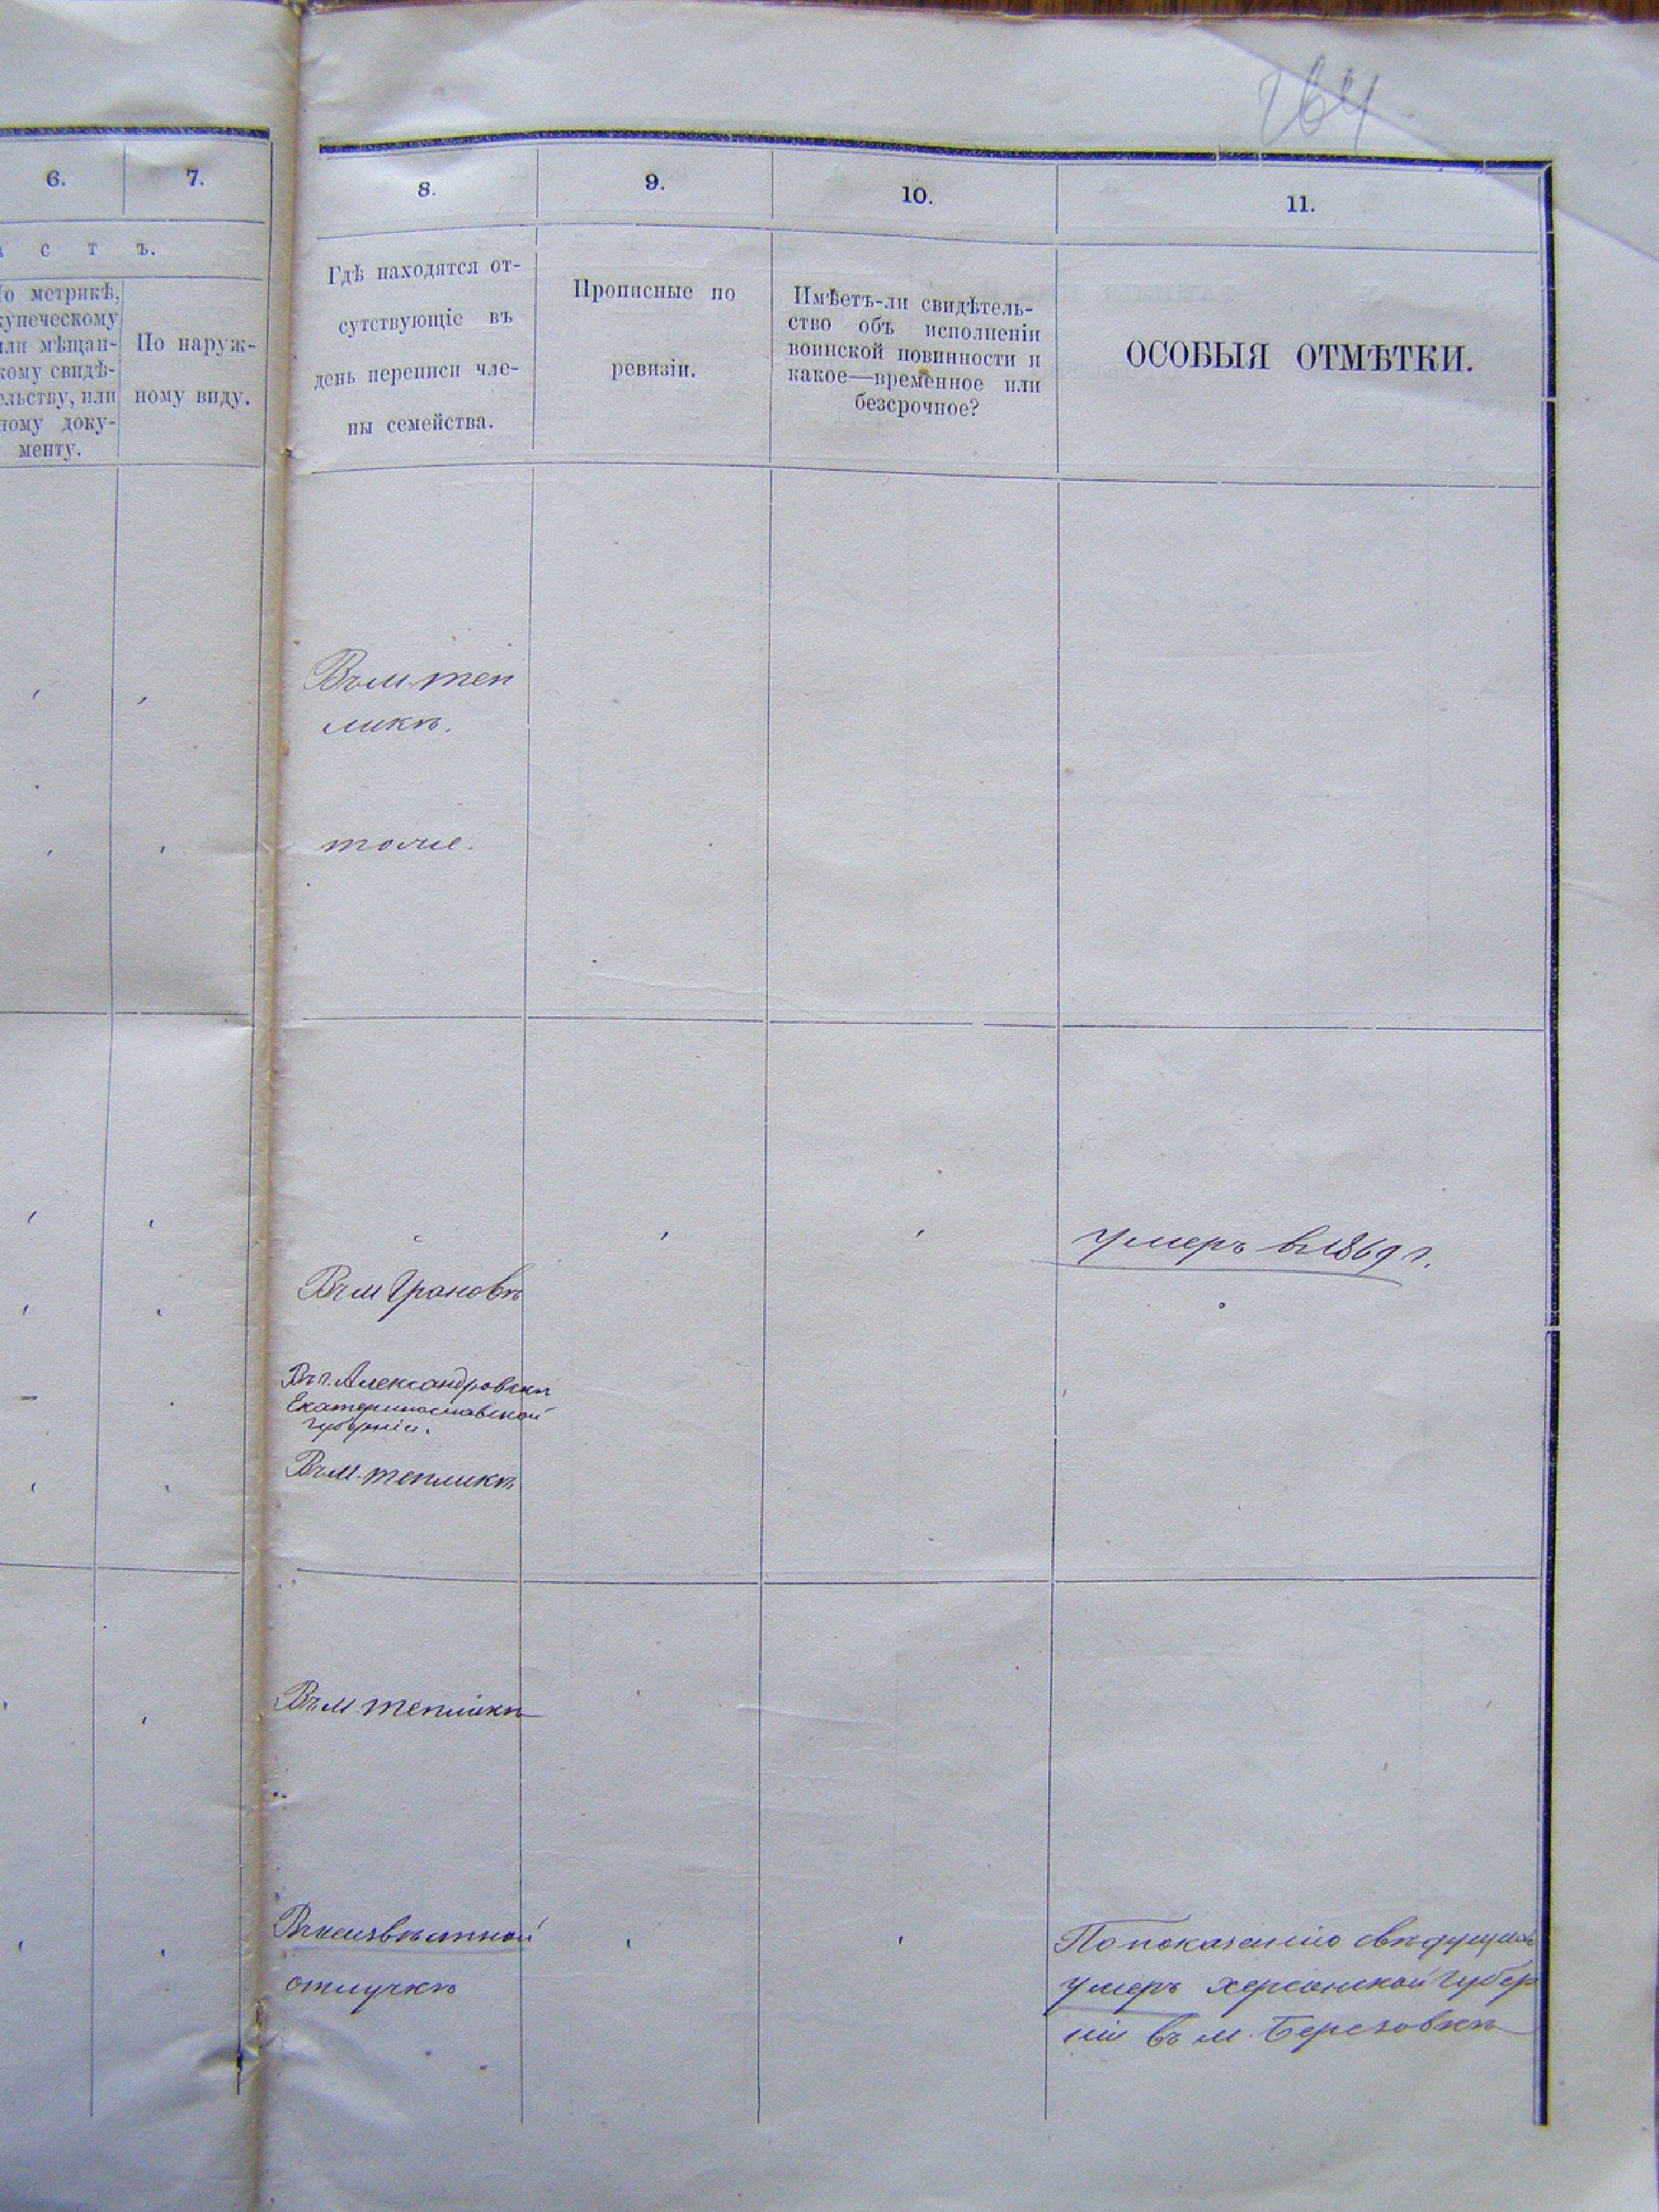 264
6.
7.
8.
9.
10.
11.
с т ъ.
По метрикѣ,
купеческому
или мѣщан-
скому свидѣ-
тельству, или
иному доку-
менту.
По наруж-
ному виду.
Гдѣ находятся от-
сутствующіе въ
день переписи чле-
ны семейства.
Прописные по
ревизіи.
Имѣетъ-ли свидѣтель-
ство объ исполненіи
воинской повинности и
какое—временное или
безсрочное?
ОСОБЫЯ ОТМѢТКИ.
Въ м теп
ликѣ.
тоже.
умеръ в 1869 г.
Въ м Грановѣ
Въ г. Александровскѣ
Екатеринославской
губерніи.
Въ м. тепликѣ
Въ м тепликѣ
Въ неизвѣстной
отлучкѣ
По показанію свѣдущихъ
умеръ херсонской губер
ніи въ м. Березовкѣ